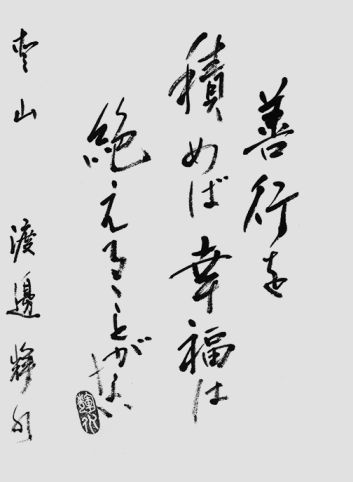 善行を
積めば幸福は
絶えることがない
山 渡邊